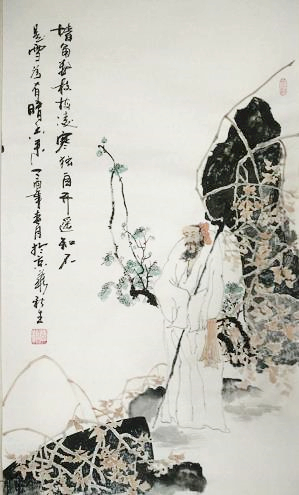 墙角数枝梅凌寒独自开遥知不
是雪為有暗香来丁酉年春月於京華